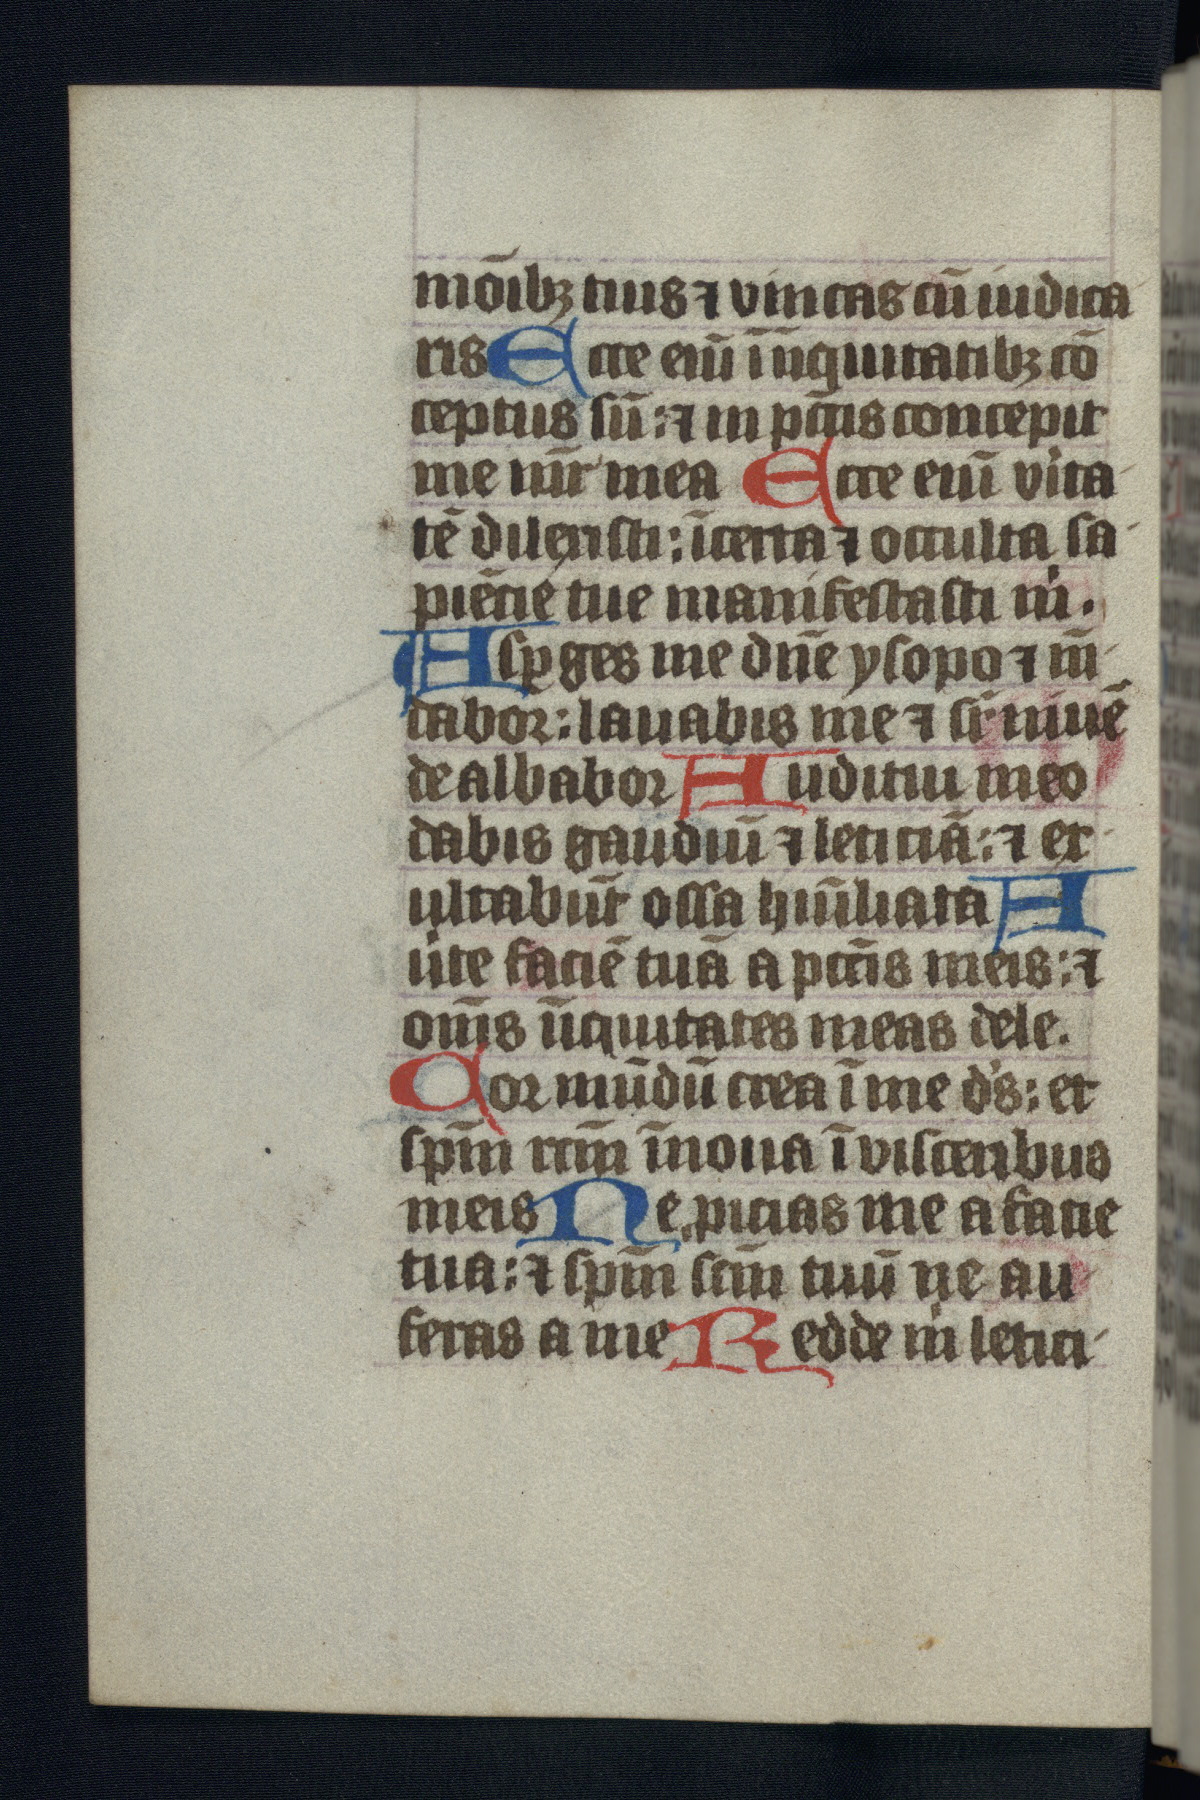 mo̅ibꝫ tuis ⁊ vincas cu̅ iudica
ris Ecce eni̅ i̅ iniquitatibꝫ co̅
ceptus su̅: ⁊ in pcc̅is concepit
me mr̅ mea Ecce eni̅ vita
te̅ dilexisti: i̅certa ⁊ occulta sa
pie̅cie tue manifestasti m̍.
Asꝑges me dn̅e ysopo ⁊ mu̅
dabor: lauabis me ⁊ sr̅ niue̅
dealbabor Auditui meo
dabis gaudiu̅ ⁊ leticia̅: ⁊ ex
ultabu̅t ossa humi̅liata A
u̍te facie̅ tua̅ a pcc̅is meis: ⁊
om̅s i̅iquitates meas dele.
Cor mu̅du̅ crea i̅ me ds̍: et
spm̅ rcm̅ i̅noua i̅ visceribus
meis Ne ꝓicias me a facie
tua: ⁊ spm̅ scm̅ tuu̅ ne au
feras a me Redde m̍ letici